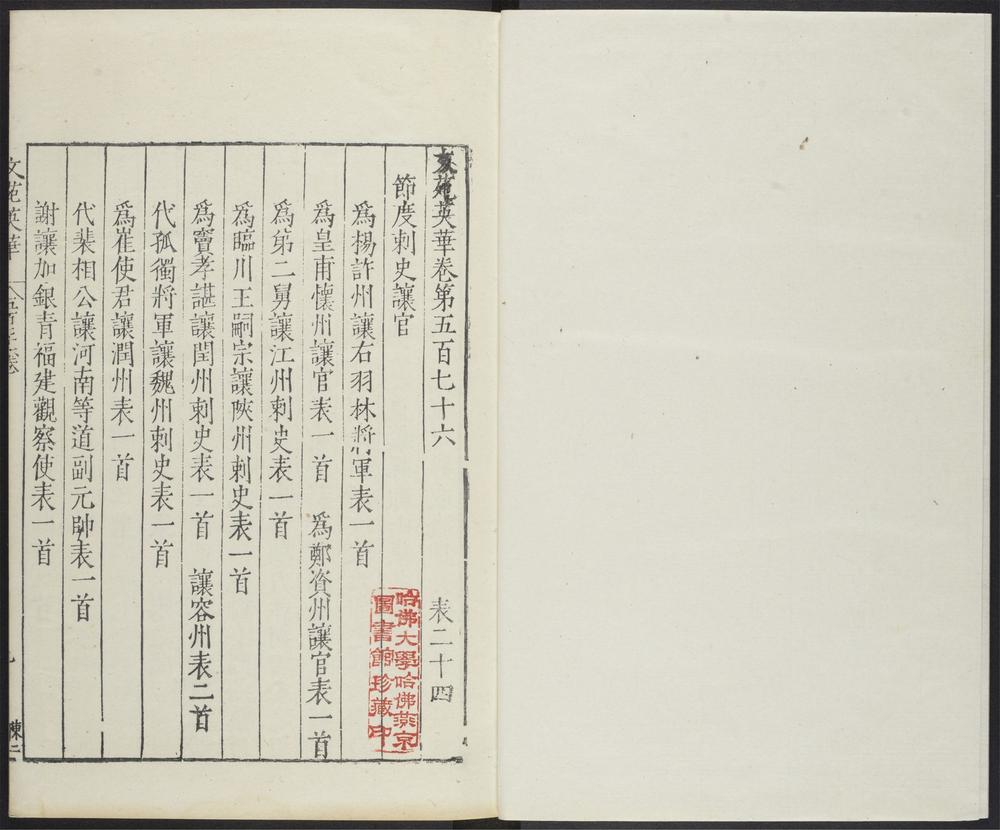 文苑英華卷第五百七十六 表二十四
節度刺史讓官
爲揚許州讓右羽林將軍表一首
爲皇甫懷州讓官表一首 爲鄭資州讓官表一首
爲第二舅讓江州刺史表一首
爲臨川王嗣宗讓陜州刺史表一首
爲竇孝諶讓閏州刺史表一首 讓容州表二首
代孤獨將軍讓魏州刺史表一首
爲崔使君讓潤州表一首
代裴相公讓河南等道副元帥表一首
謝讓加銀青福建觀察使表一首
文苑英華
哈佛大學哈佛燕京
圖書館珍藏印